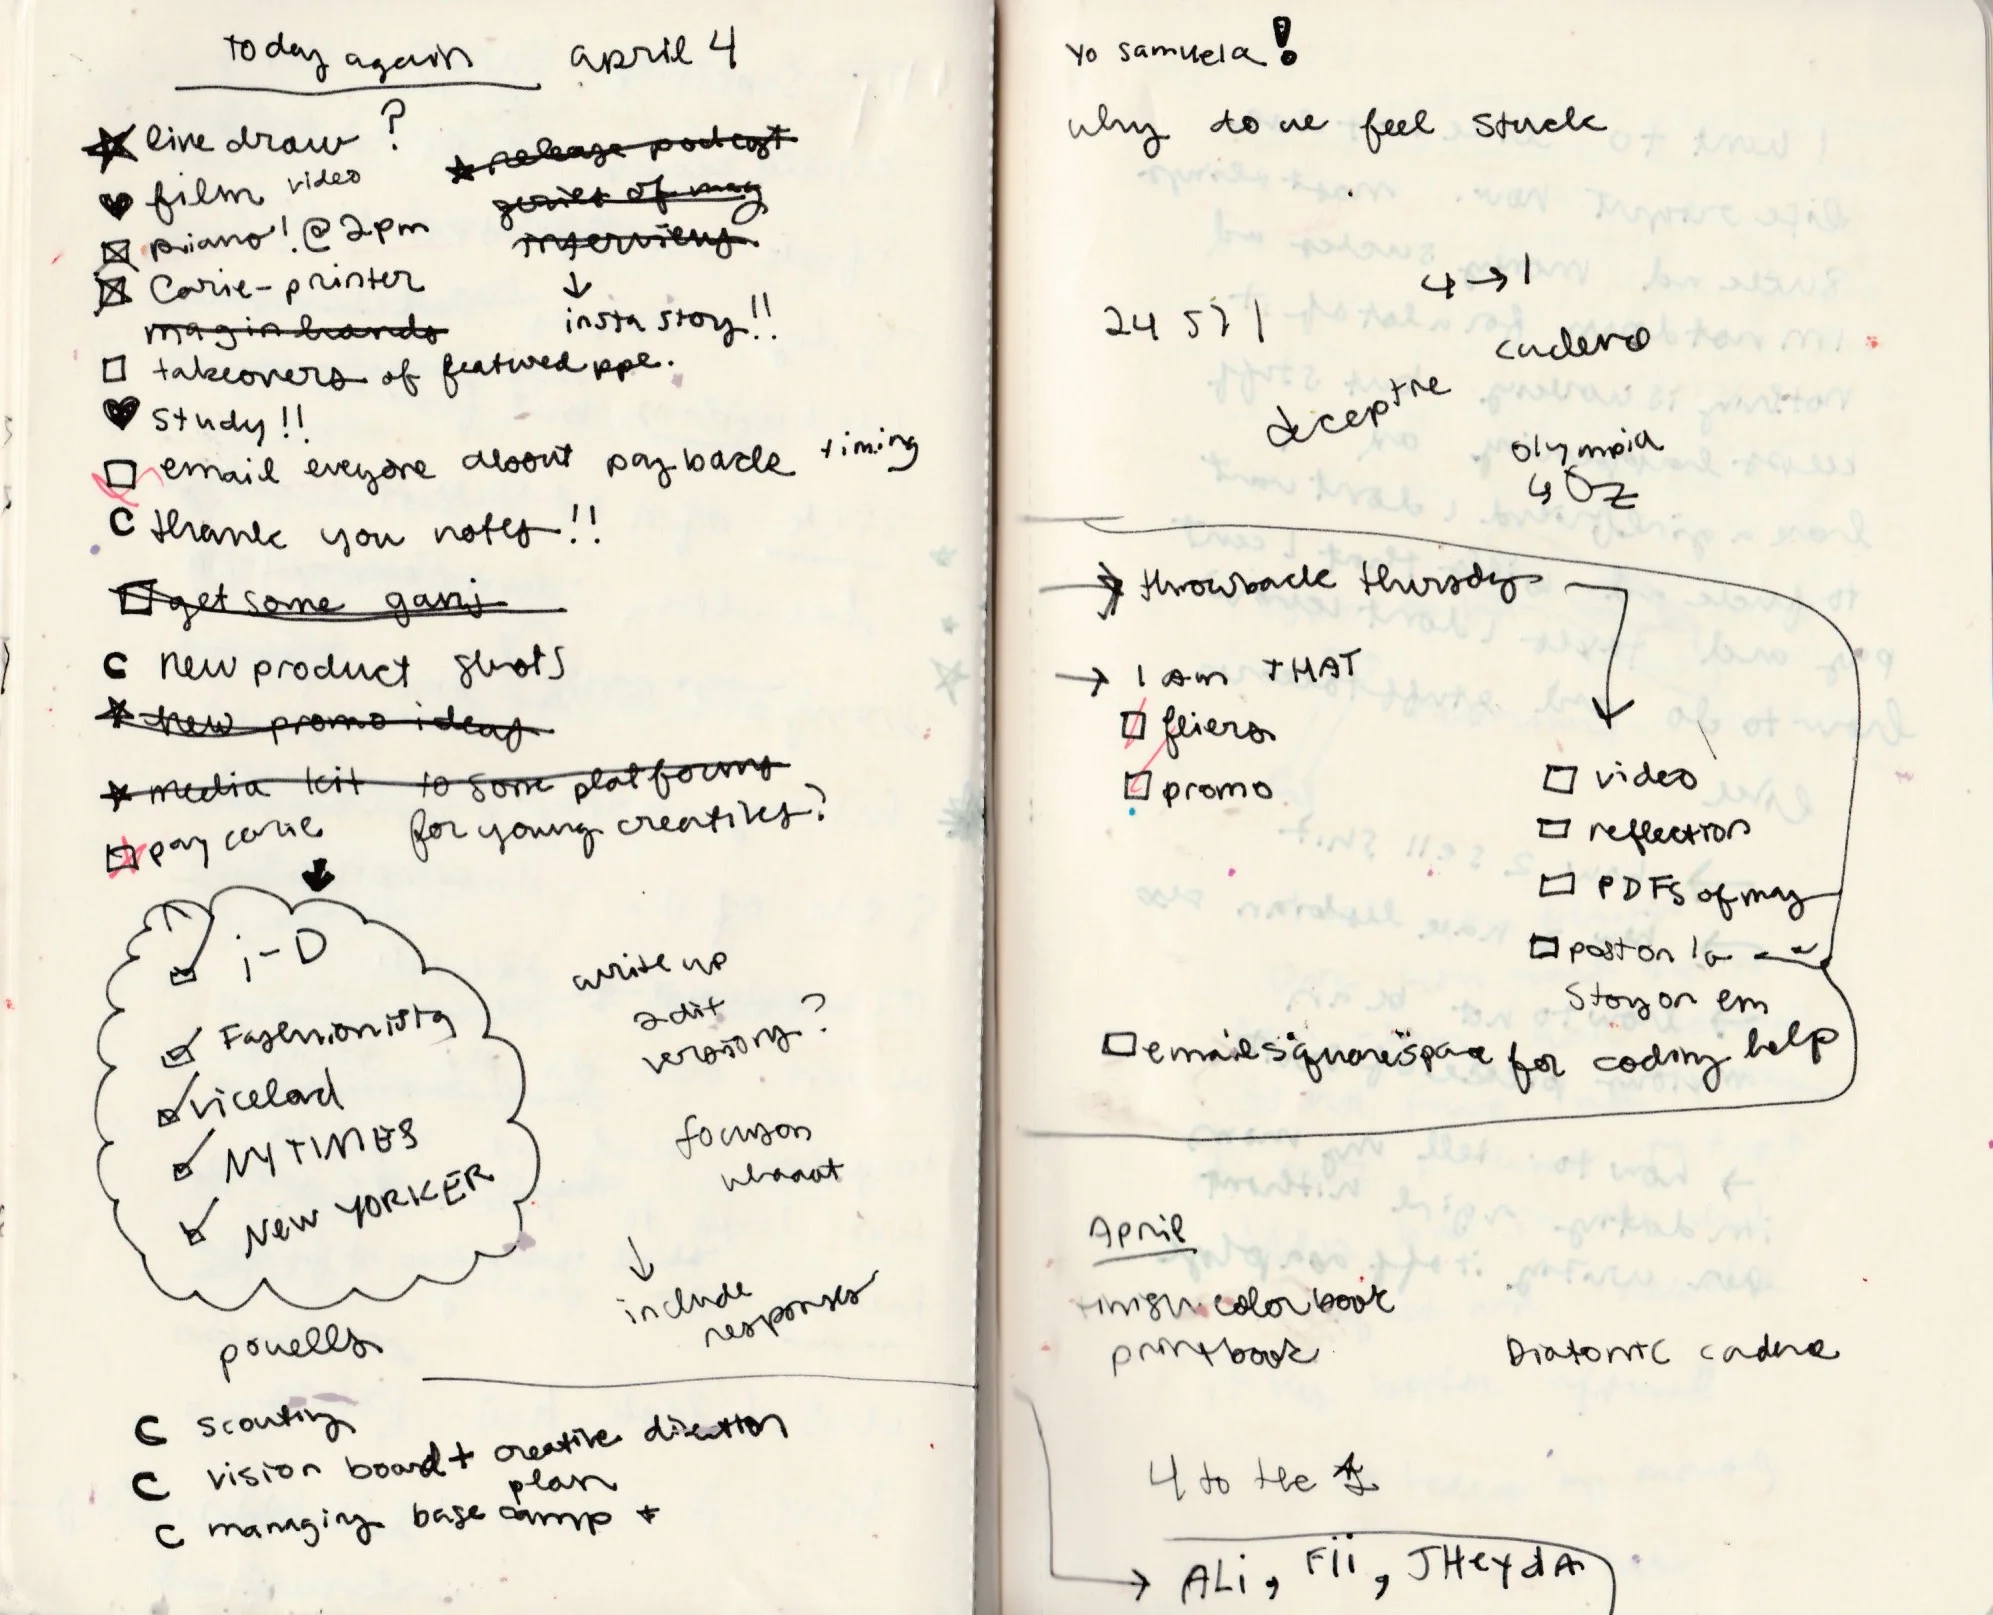 today again april 4
live draw ?
film video
piano! @ 2pm
Carie - printer
mag in hands
release podcast
series of mag
interviews
↓
insta story!!
takeovers of featured ppl.
study!!
email everyone about pay back timing
C thank you notes!!
get some ganj
C new product shots
new promo ideas
media kit to some platforms
for young creatives?
pay carie
i-D
Fashionista
viceland
NY TIMES
NEW YORKER
write up
edit
versions?
focus on
whaaat
↓
include
responses
powells
C scouting
C vision board + creative direction
plan
C managing base camp +
yo samuela!
why do we feel stuck
4 → 1
24 571
cadence
deceptive
olympia
↳ Oz
→ throwback thursday
→ I am THAT
fliers
promo
video
reflection
PDFs of mag
post on IG
Story on em
email squarespace for coding help
April
finish color book
print book
Diatonic cadence
4 to the 1
→ ALi, Fii, JHeydA